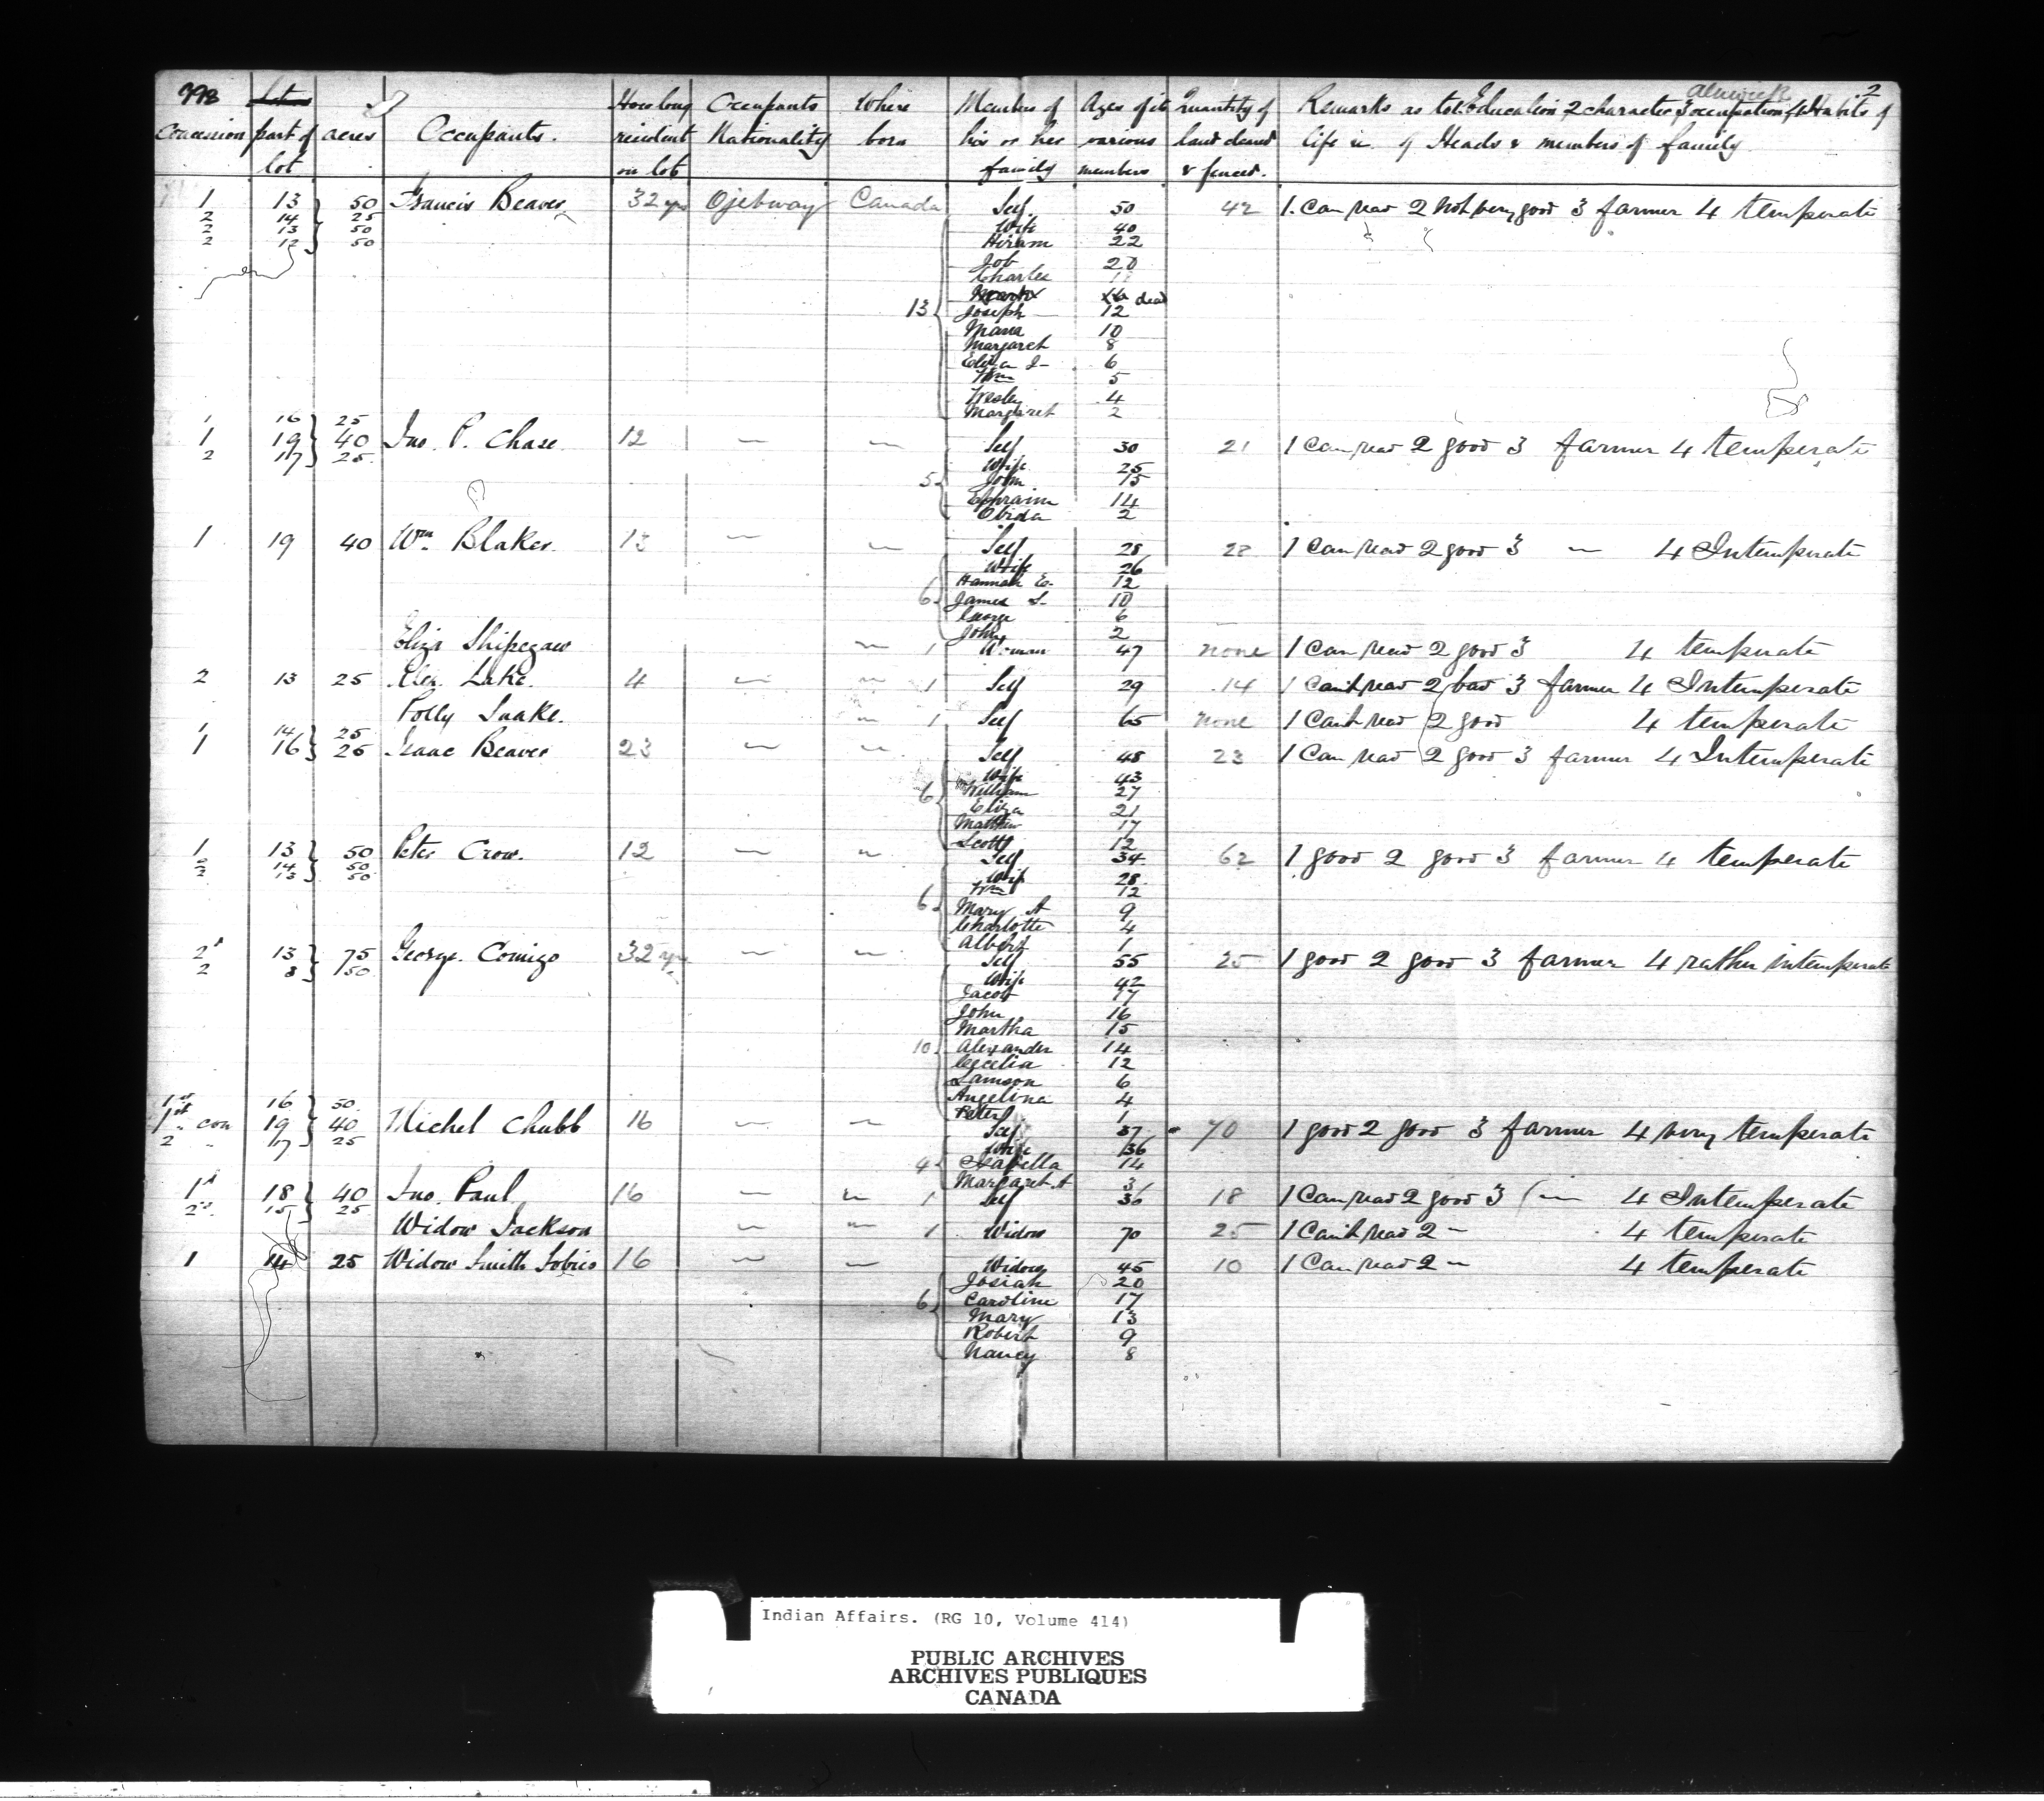 Alnwick 2
998 How long Occupants Where Members of Ages of its Quantity of Remarks as to 1 Education, 2 character 3 occupation, 4 Habits of
Concession part of acres Occupants. resident Nationality born his or her various land cleared life &c of Heads & members of family
lot on lot family members & fenced.
1 13 50 Francis Beaver 32 yrs Ojebway Canada Self 50 42 1. Can read 2 Not very good 3 farmer 4 temperate
2 14 25 Wife 40
2 13 50 Hiram 22
2 12 50 Job 20
Charles
Mark dead
13 Joseph 12
Maria 10
Margaret 8
Eliza J- 6
Wm 5
Wesley 4
Margaret 2
1 16 25
1 19 40 Jno. P. Chase 12 — — Self 30 21 1 Can read 2 good 3 farmer 4 temperate
2 17 25 Wife 25
5 John 15
Ephraim 14
Obida 2
1 19 40 Wm. Blaker 13 — — Self 28 22 1 Can read 2 good 3 — 4 Intemperate
Wife 26
Hannah E. 12
6 James S. 10
George 6
John 2
Eliza Shipegaw — 1 Woman 47 none 1 Can read 2 good 3 4 temperate
2 13 25 Alex. Lake. 4 — — 1 Self 29 14 1 Can't read 2 bad 3 farmer 4 Intemperate
Polly Snake. — 1 Self 65 none 1 Can't read 2 good 4 temperate
1 14 25
1 16 25 Isaac Beaver 23 — — Self 48 23 1 Can read 2 good 3 farmer 4 Intemperate
Wife 43
6 William 27
Eliza 21
Matthew 17
Scott 12
1 13 50 Peter Crow. 12 — — Self 34 62 1 good 2 good 3 farmer 4 temperate
2 14 50 Wife 28
2 13 50 Wm 12
6 Mary A 9
Charlotte 4
Albert 1
2 13 75 George Comigo 32 yrs — — Self 55 25 1 good 2 good 3 farmer 4 rather intemperate
2 8 50 Wife 42
Jacob 17
John 16
Martha 15
10 Alexander 14
Cecelia 12
Lamson 6
Angelina 4
Peter 1
1st 16 50
1st con 19 40 Michel Chubb 16 — — Self 37 70 1 good 2 good 3 farmer 4 very temperate
2 " 17 25 Wife 36
4 Isabella 14
Margaret A 3
1 18 40 Jno. Paul 16 — — 1 Self 36 18 1 Can read 2 good 3 — 4 Intemperate
2 15 25
Widow Jackson — — 1 Widow 70 25 1 Can't read 2 — 4 temperate
1 14 25 Widow Smith Sobies 16 — — Widow 45 10 1 Can read 2 — 4 temperate
Josiah 20
6 Caroline 17
Mary 13
Robert 9
Nancy 8
Indian Affairs. (RG 10, Volume 414)
PUBLIC ARCHIVES
ARCHIVES PUBLIQUES
CANADA